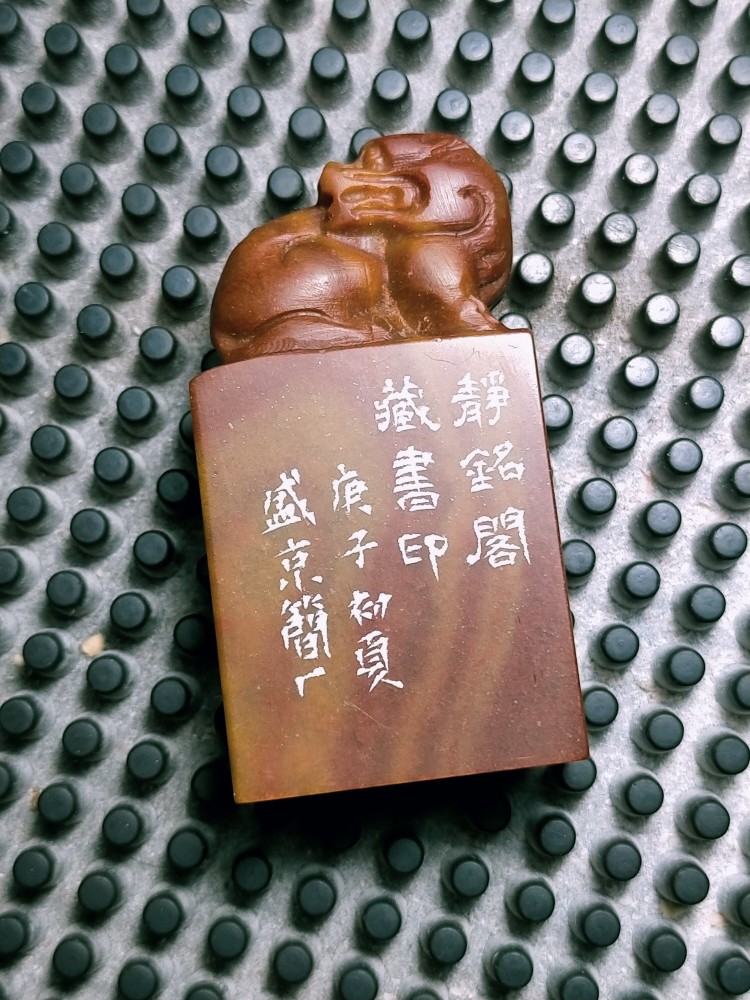 靜銘閣
藏書印
庚子初夏
盛京簡厂